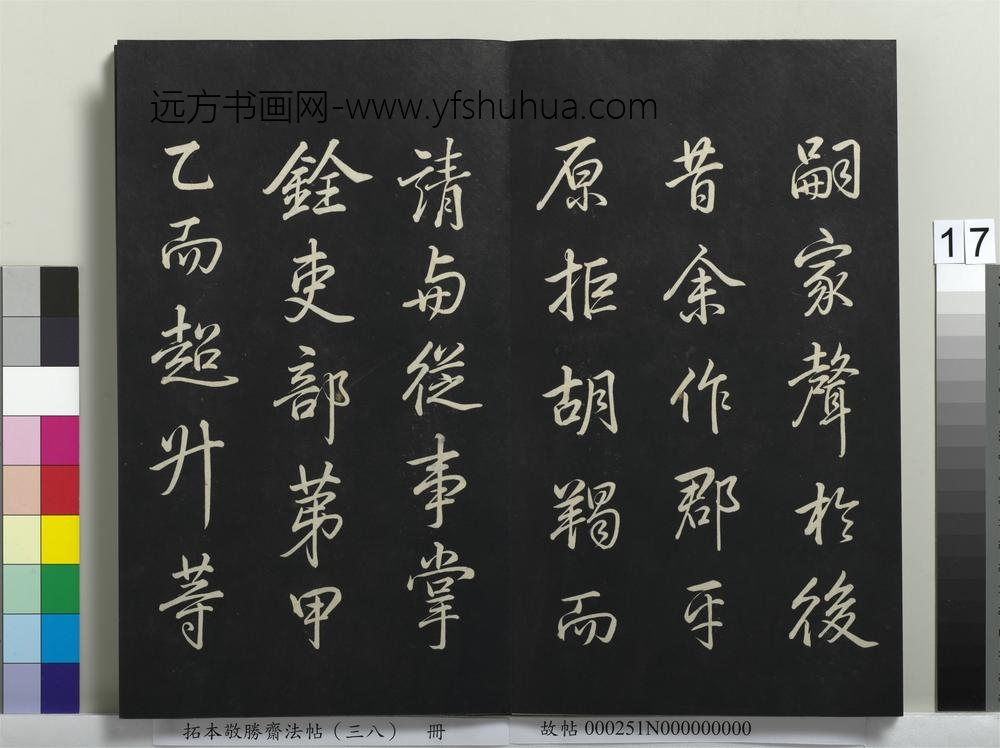 远方书画网-www.yfshuhua.com
嗣家聲於後
昔余作郡平
原拒胡羯而
請與從事掌
銓吏部第甲
乙而超升等
17
拓本敬勝齋法帖（三八） 冊
故帖 000251N000000000